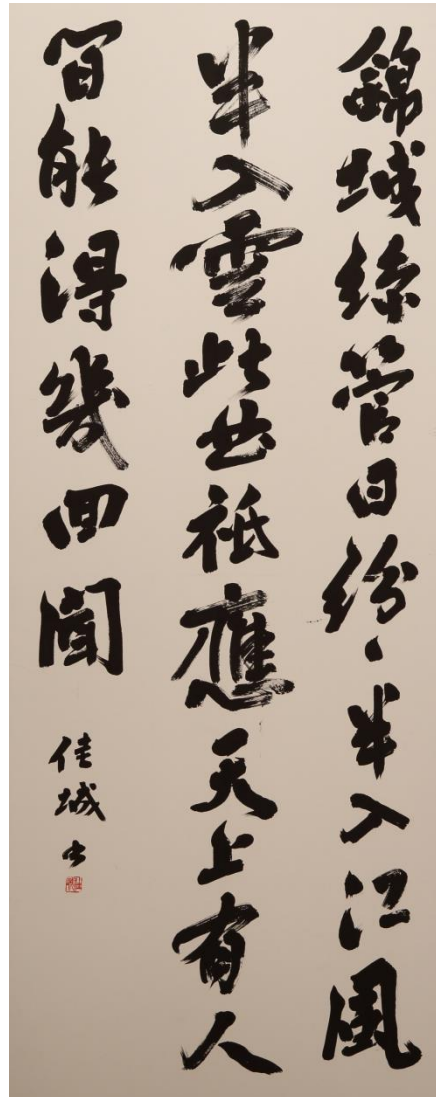 錦城絲管日紛、半入江風
半入雲此曲祇應天上有人
間能得幾回聞
佳城书